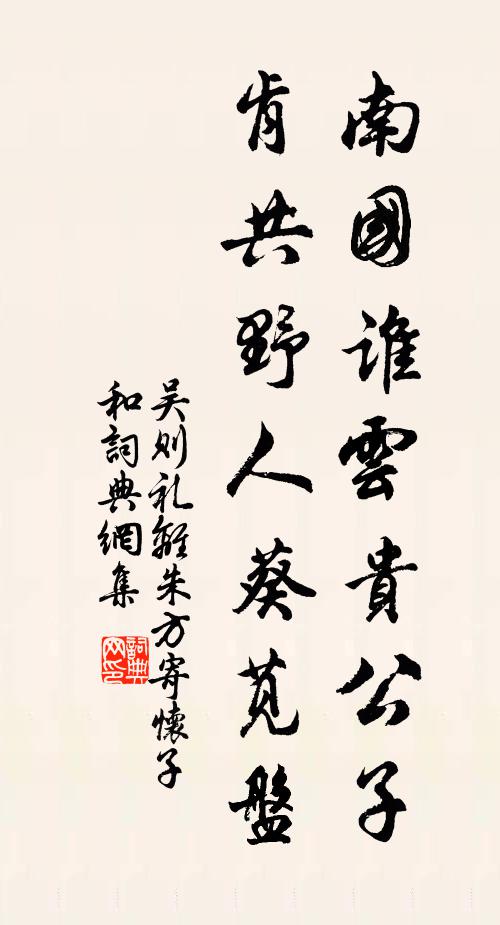 南國誰雲貴公子
肯共野人葵莧盤
吴則礼離朱方寄懷子
和詞典網集
詞典網印